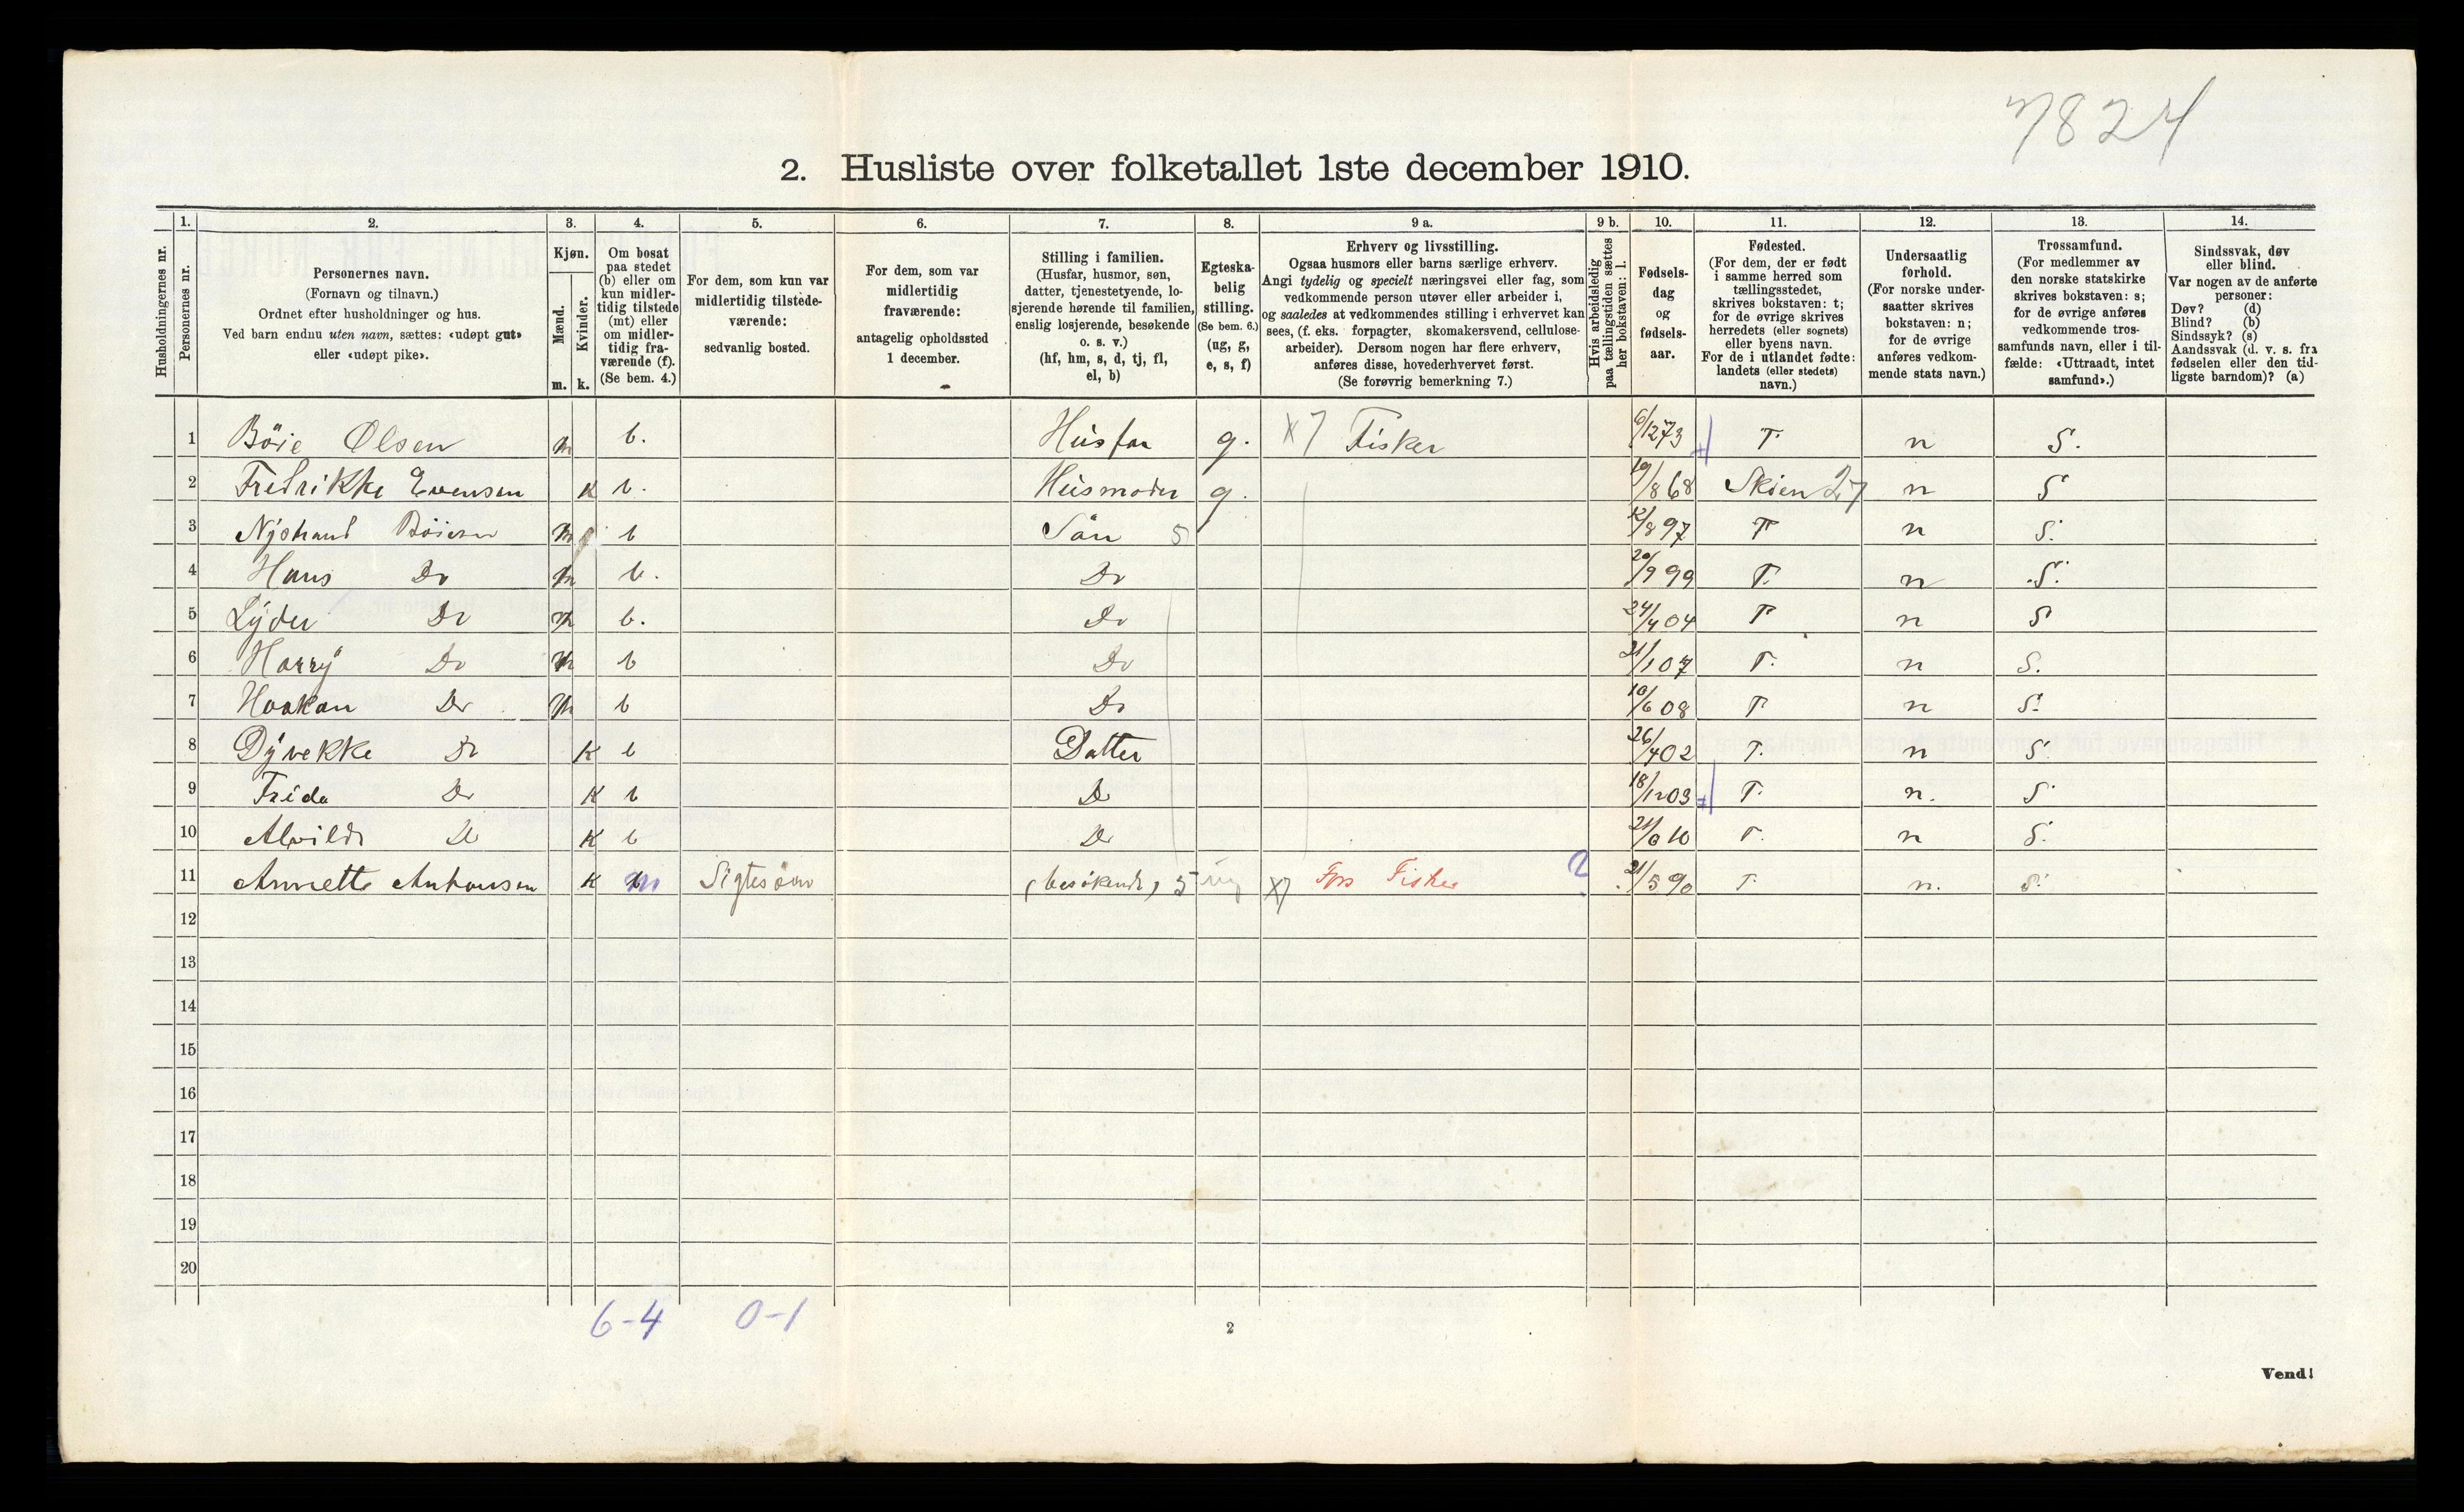 7824
2. Husliste over folketallet 1ste december 1910.
Husholdningernes nr.
1.
Personernes nr.
2.
Personernes navn.
(Fornavn og tilnavn.)
Ordnet efter husholdninger og hus.
Ved barn endnu uten navn, sættes: «udøpt gut»
eller «udøpt pike».
3.
Kjøn.
Mænd.
Kvinder.
m. k.
4.
Om bosat
paa stedet
(b) eller om
kun midler-
tidig tilstede
(mt) eller
om midler-
tidig fra-
værende (f).
(Se bem. 4.)
5.
For dem, som kun var
midlertidig tilstede-
værende:
sedvanlig bosted.
6.
For dem, som var
midlertidig
fraværende:
antagelig opholdssted
1 december.
7.
Stilling i familien.
(Husfar, husmor, søn,
datter, tjenestetyende, lo-
sjerende hørende til familien,
enslig losjerende, besøkende
o. s. v.)
(hf, hm, s, d, tj, fl,
el, b)
8.
Egteska-
belig
stilling.
(Se bem. 6.)
(ug, g,
e, s, f)
9 a.
Erhverv og livsstilling.
Ogsaa husmors eller barns særlige erhverv.
Angi tydelig og specielt næringsvei eller fag, som
vedkommende person utøver eller arbeider i,
og saaledes at vedkommendes stilling i erhvervet kan
sees, (f. eks. forpagter, skomakersvend, cellulose-
arbeider). Dersom nogen har flere erhverv,
anføres disse, hovederhvervet først.
(Se forøvrig bemerkning 7.)
9 b.
Hvis arbeidsledig
paa tællingstiden sættes
her bokstaven: l.
10.
Fødsels-
dag
og
fødsels-
aar.
11.
Fødested.
(For dem, der er født
i samme herred som
tællingsstedet,
skrives bokstaven: t;
for de øvrige skrives
herredets (eller sognets)
eller byens navn.
For de i utlandet fødte:
landets (eller stedets)
navn.)
12.
Undersaatlig
forhold.
(For norske under-
saatter skrives
bokstaven: n;
for de øvrige
anføres vedkom-
mende stats navn.)
13.
Trossamfund.
(For medlemmer av
den norske statskirke
skrives bokstaven: s;
for de øvrige anføres
vedkommende tros-
samfunds navn, eller i til-
fælde: «Uttraadt, intet
samfund».)
14.
Sindssvak, døv
eller blind.
Var nogen av de anførte
personer:
Døv? (d)
Blind? (b)
Sindssyk? (s)
Aandssvak (d. v. s. fra
fødselen eller den tid-
ligste barndom)? (a)
1 Böie Olsen m b. Husfar g. X7 Fisker 6/12 73 T n S.
2 Fredrikke Evensen K b. Husmoder g. 19/8 68 Skien 27 n S
3 Böiesen m b Sön 5 12/8 97 T n S.
4 Hans Do m b. Do 20/9 99 T. n S.
5 Lyder Do m b. Do 24/4 04 T n S
6 Harry Do m b Do 21/1 07 T. n S.
7 Haakon Do m b Do 10/6 08 T n S.
8 Dyvekke Do K b Datter 26/4 02 T. n S.
9 Frida Do K b Do 18/12 03 T. n. S.
10 Alvilde Do K b Do 21/6 10 T. n S.
11 Annette Antonsen K m Sigtesöen (besökende) 5 ug X7 Fors Fisker ? 21/5 90 T. n. S.
12
13
14
15
16
17
18
19
20
6-4 0-1
2
Vend!